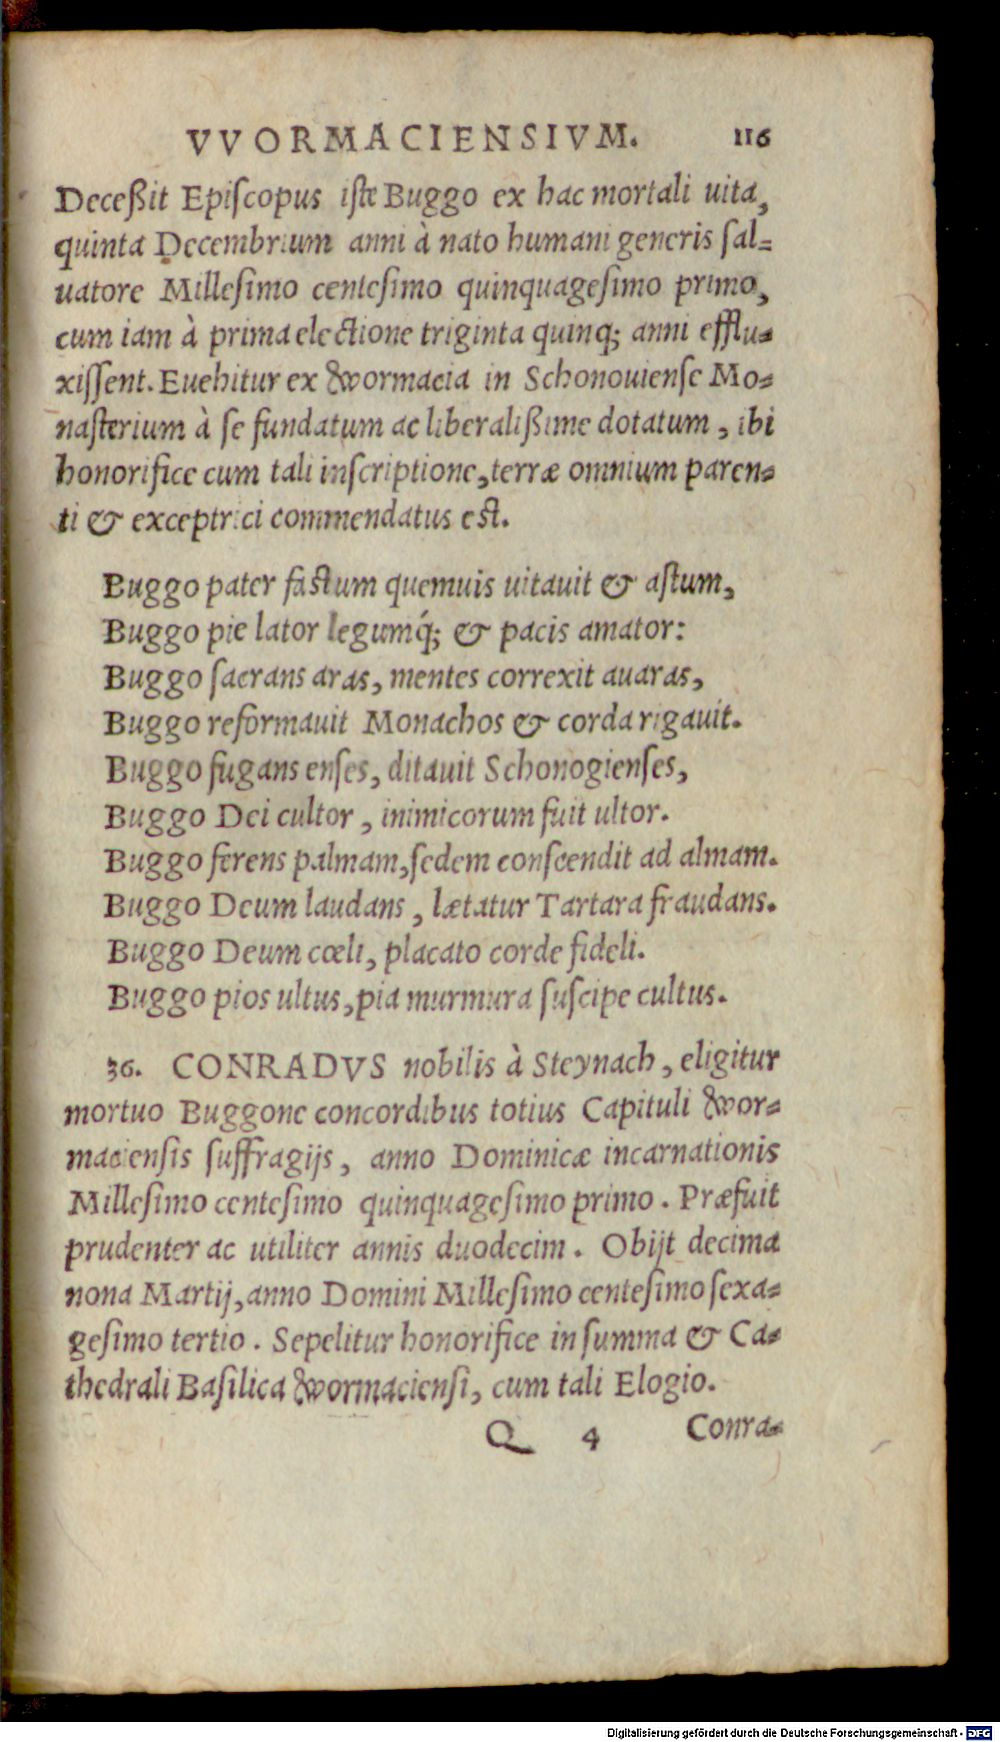 VVORMACIENSIVM. 116
Deceßit Episcopus iste Buggo ex hac mortali uita,
quinta Decembrium anni à nato humani generis sal=
uatore Millesimo centesimo quinquagesimo primo,
cum iam à prima electione triginta quinq; anni efflu=
xissent. Euehitur ex Wormacia in Schonouiense Mo=
nasterium à se fundatum ac liberalißime dotatum, ibi
honorifice cum tali inscriptione, terræ omnium paren=
ti & exceptrici commendatus est.
Buggo pater fastum quemuis uitauit & astum,
Buggo pie lator legumq́; & pacis amator:
Buggo sacrans aras, mentes correxit auaras,
Buggo reformauit Monachos & corda rigauit.
Buggo fugans enses, ditauit Schonogienses,
Buggo Dei cultor, inimicorum fuit ultor.
Buggo ferens palmam, sedem conscendit ad almam.
Buggo Deum laudans, lætatur Tartara fraudans.
Buggo Deum cœli, placato corde fideli.
Buggo pios ultus, pia murmura suscipe cultus.
36. CONRADVS nobilis à Steynach, eligitur
mortuo Buggone concordibus totius Capituli Wor=
maciensis suffragijs, anno Dominicæ incarnationis
Millesimo centesimo quinquagesimo primo. Præfuit
prudenter ac utiliter annis duodecim. Obijt decima
nona Martij, anno Domini Millesimo centesimo sexa=
gesimo tertio. Sepelitur honorifice in summa & Ca=
thedrali Basilica Wormaciensi, cum tali Elogio.
Q 4 Conra=
Digitalisierung gefördert durch die Deutsche Forschungsgemeinschaft - DFG